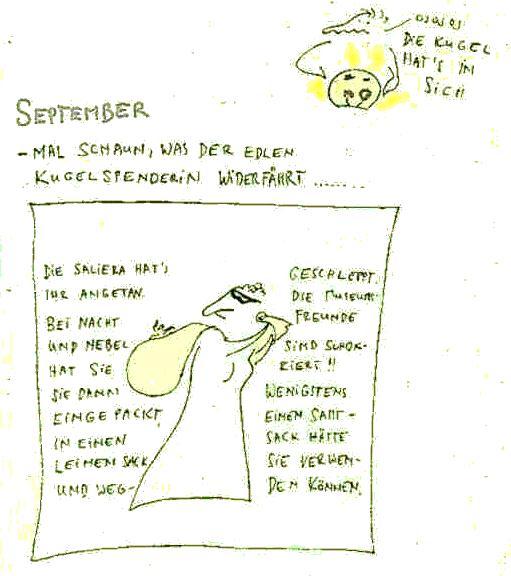 OJOJOJ
DIE KUGEL
HAT'S IN
SICH
SEPTEMBER
- MAL SCHAUN, WAS DER EDLEN
KUGELSPENDERIN WIDERFÄHRT ......
DIE SALIERA HAT'S
IHR ANGETAN.
BEI NACHT
UND NEBEL
HAT SIE
SIE DANN
EINGEPACKT,
IN EINEN
LEINEN SACK
UND WEG-
GESCHLEPPT.
DIE MUSEUM-
FREUNDE
SIND SCHOK-
KIERT!!
WENIGSTENS
EINEN SAMT-
SACK HÄTTE
SIE VERWEN-
DEN KÖNNEN.